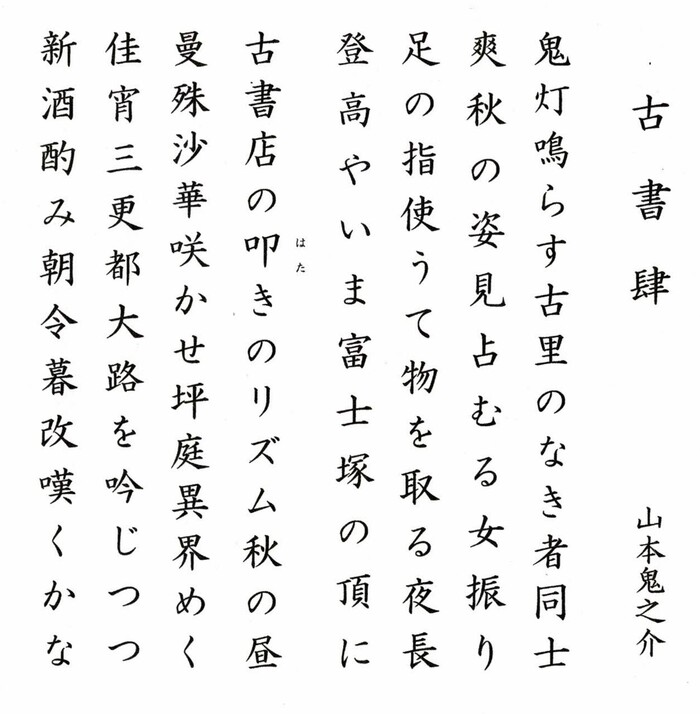 古書肆
山本鬼之介
鬼灯鳴らす古里のなき者同士
爽秋の姿見占むる女振り
足の指使うて物を取る夜長
登高やいま富士塚の頂に
古書店の叩きのリズム秋の昼
はた
曼殊沙華咲かせ坪庭異界めく
佳宵三更都大路を吟じつつ
新酒酌み朝令暮改嘆くかな